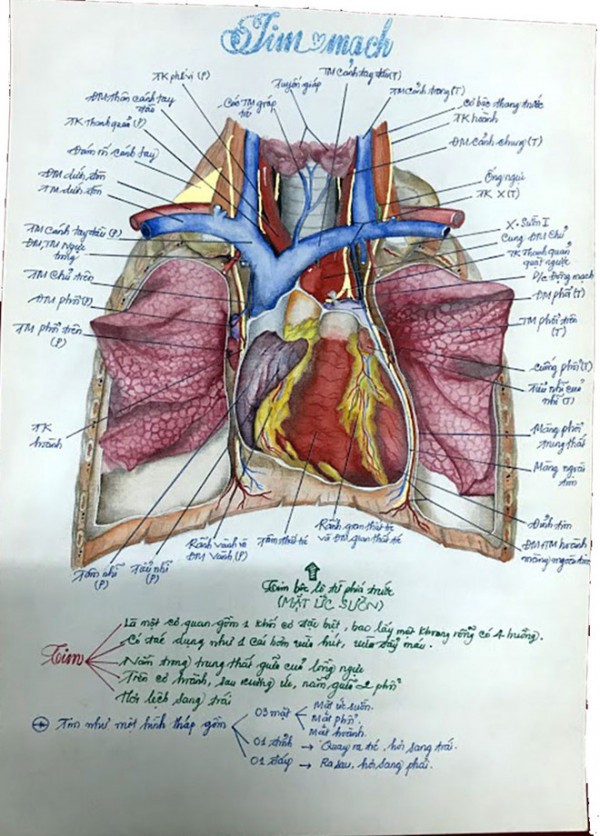 Tim mạch
TK phế vị (P)
ĐM thân cánh tay
đầu
TK Thanh quản (P)
Đám rối cánh tay
ĐM dưới đòn
TM dưới đòn
TM Cánh tay đầu (P)
ĐM, TM Ngực
trong
TM Chủ trên
ĐM phổi (P)
TM phổi trên
(P)
TK
hoành
Các TM giáp
Tuyến giáp
TM Cánh tay đầu (T)
TM cảnh trong (T)
Cơ bậc thang trước
TK hoành
ĐM cảnh chung (T)
Ống ngực
TK X (T)
X. Sườn I
Cung ĐM Chủ
TK Thanh quản
quặt ngược
D/c Động mạch
ĐM phổi (T)
TM phổi trên
(T)
Cuống phổi (T)
Tiểu nhĩ của
nhĩ (T)
Màng phổi
trung thất
Màng ngoài
tim
Đỉnh tim
ĐM, TM hoành
màng ngoài tim
Tâm nhĩ
(P)
Tiểu nhĩ
(P)
Rãnh vành và
ĐM Vành (P)
Tâm thất
Rãnh gian thất
và ĐM gian thất
Tim bộc lộ từ phía trước
(MẶT ỨC SƯỜN)
Tim
Là một cơ quan gồm 1 khối cơ đặc biệt, bao lấy một khoang rỗng có 4 buồng.
Có tác dụng như 1 cái bơm vừa hút, vừa đẩy máu.
Nằm trong trung thất giữa của lồng ngực
Trên cơ hoành, sau xương ức, nằm giữa 2 phổi
Hơi lệch sang trái
Tim như một hình tháp gồm
03 mặt
Mặt ức sườn.
Mặt phổi.
Mặt hoành.
01 đỉnh → Quay ra trc, hơi sang trái.
01 đáy → Ra sau, hơi sang phải.